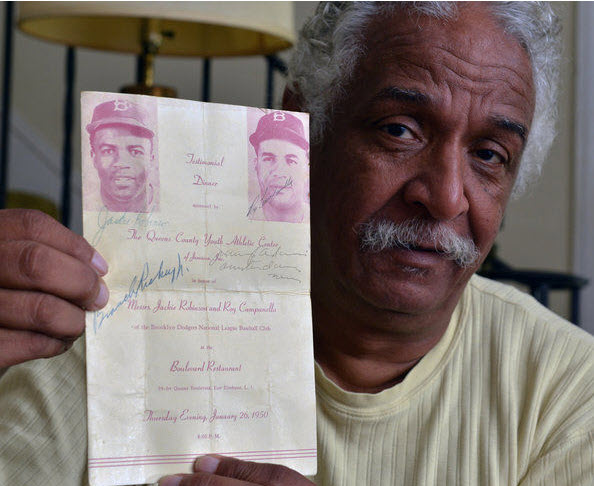 B
B
Testimonial
Dinner
sponsored by
Jackie Robinson
The Queens County Youth Athletic Center
of Jamaica, Inc.
in honor of
Branch Rickey Jr.
Messrs Jackie Robinson and Roy Campanella
of the Brooklyn Dodgers National League Baseball Club
at the
Boulevard Restaurant
Queens Boulevard, L. I.
Thursday Evening, January 26, 1950
P.M.